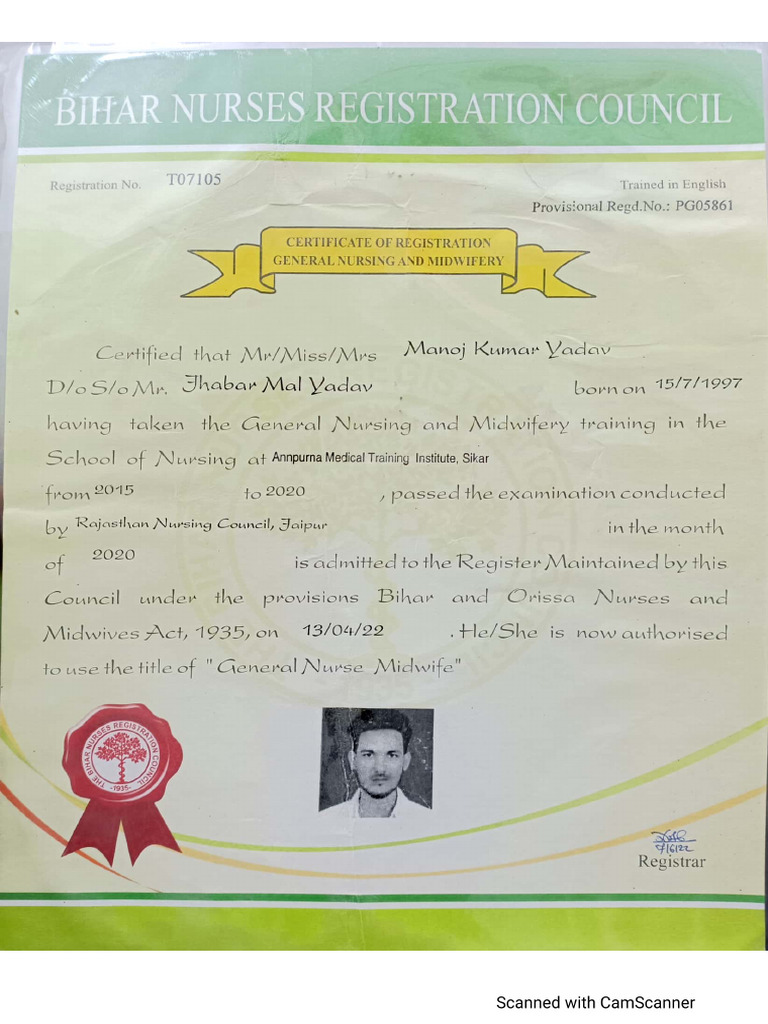 BIHAR NURSES REGISTRATION COUNCIL
Registration No. T07105 Trained in English
Provisional Regd.No.: PG05861
CERTIFICATE OF REGISTRATION
GENERAL NURSING AND MIDWIFERY
Certified that Mr/Miss/Mrs Manoj Kumar Yadav
D/o S/o Mr. Jhabar Mal Yadav born on 15/7/1997
having taken the General Nursing and Midwifery training in the
School of Nursing at Annpurna Medical Training Institute, Sikar
from 2015 to 2020 , passed the examination conducted
by Rajasthan Nursing Council, Jaipur in the month
of 2020 is admitted to the Register Maintained by this
Council under the provisions Bihar and Orissa Nurses and
Midwives Act, 1935, on 13/04/22 . He/She is now authorised
to use the title of "General Nurse Midwife"
THE BIHAR NURSES REGISTRATION COUNCIL
-1935-
Registrar
Scanned with CamScanner